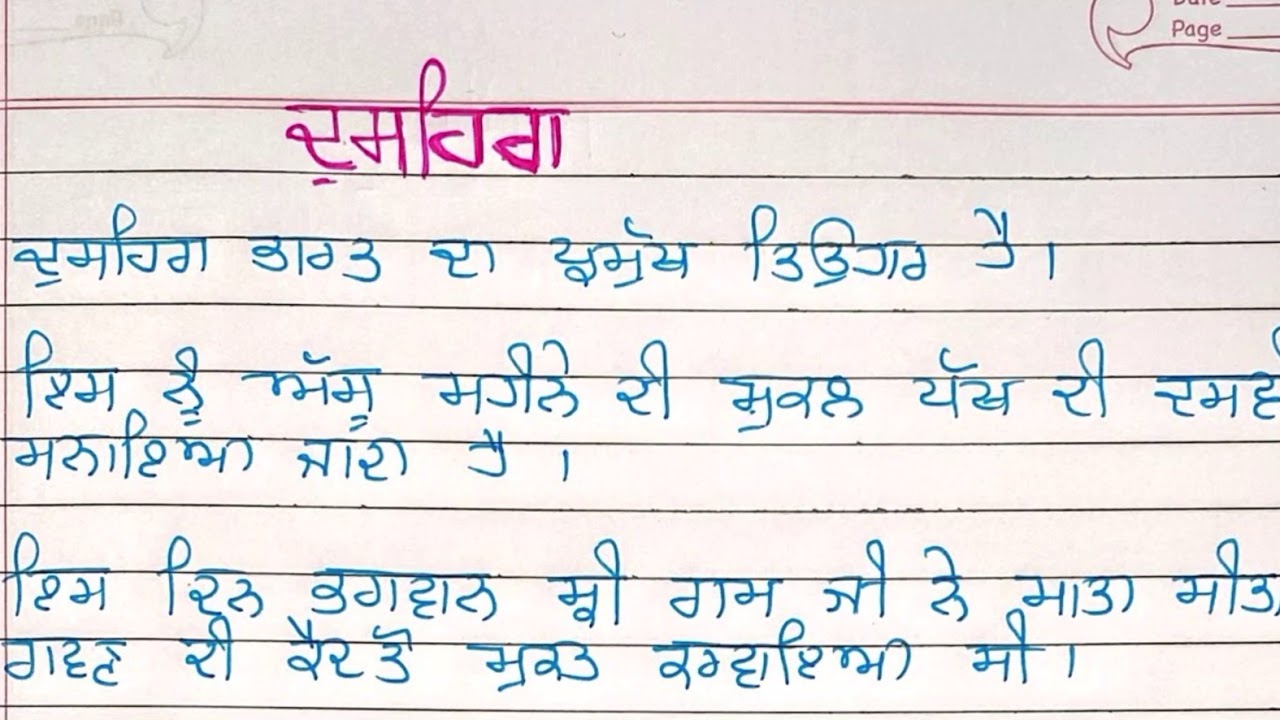 Date
Page
ਦੁਸਹਿਰਾ
ਦੁਸਹਿਰਾ ਭਾਰਤ ਦਾ ਪ੍ਰਮੁੱਖ ਤਿਉਹਾਰ ਹੈ।
ਇਸ ਨੂੰ ਅੱਸੂ ਮਹੀਨੇ ਦੀ ਸ਼ੁਕਲ ਪੱਖ ਦੀ
ਮਨਾਇਆ ਜਾਂਦਾ ਹੈ।
ਇਸ ਦਿਨ ਭਗਵਾਨ ਸ਼੍ਰੀ ਰਾਮ ਜੀ ਨੇ ਮਾਤਾ
ਰਾਵਣ ਦੀ ਕੈਦ ਤੋਂ ਮੁਕਤ ਕਰਵਾਇਆ ਸੀ।